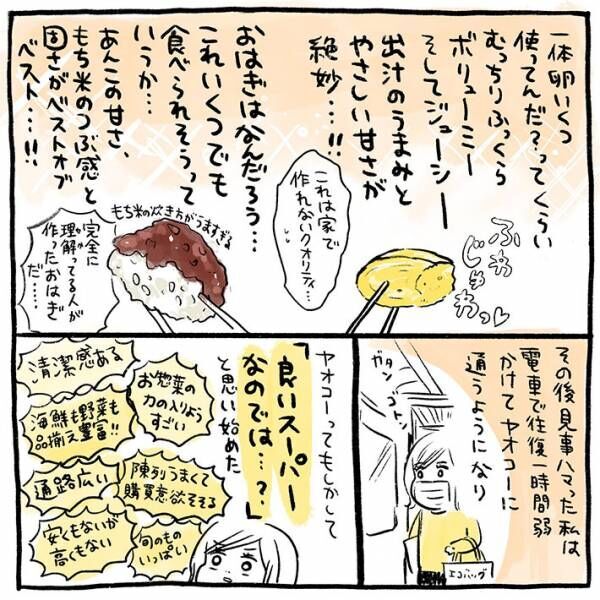 一体卵いくつ
使ってんだ?ってくらい
むっちりふっくら
ボリューミー
そしてジューシー
出汁のうまみと
やさしい甘さが
絶妙…!!
ふわ
じゅわっ
これは家で
作れないクオリティ…
おはぎはなんだろう…
これいくつでも
食べられそうって
いうか…
あんこの甘さ、
もち米のつぶ感と
固さがベストオブ
ベスト…!!
もち米の炊き方がうますぎる
完全に
理解ってる人が
作ったおはぎ
だ……
その後見事ハマった私は
電車で往復一時間弱
かけてヤオコーに
通うようになり
ガタン
ゴトン
エコバッグ
ヤオコーってもしかして
「良いスーパー
なのでは…?」
と思い始めた
お惣菜の
力の入りよう
すごい
清潔感ある
海鮮も野菜も
品揃え豊富!!
陳列うまくて
購買意欲そそる
通路広い
旬のもの
いっぱい
安くもないが
高くもない